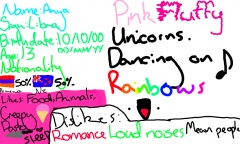 Name: Anya
Sign: Libra
Birthdate: 10/10/00
DD/MM/YY
Age: 13
Nationality
50%
50%
Likes: Food, Animals,
Creepy
Pasta
sleep
Pink Fluffy
Unicorns.
Dancing on
Rainbows
Dislikes:
Romance Loud noises Mean people